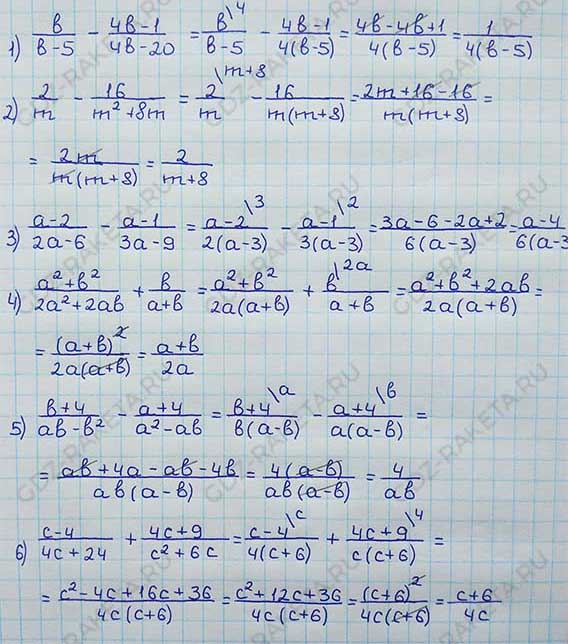 1) в/(в-5) - (4в-1)/(4в-20) = в\4/(в-5) - (4в-1)/(4(в-5)) = (4в-4в+1)/(4(в-5)) = 1/(4(в-5))
2) 2/m - 16/(m²+8m) = 2\m+8/m - 16/(m(m+8)) = (2m+16-16)/(m(m+8)) =
= 2m/(m(m+8)) = 2/(m+8)
3) (a-2)/(2a-6) - (a-1)/(3a-9) = (a-2)\3/(2(a-3)) - (a-1)\2/(3(a-3)) = (3a-6-2a+2)/(6(a-3)) = (a-4)/(6(a-3
4) (a²+в²)/(2a²+2aв) + в/(a+в) = (a²+в²)/(2a(a+в)) + в\2a/(a+в) = (a²+в²+2aв)/(2a(a+в)) =
= (a+в)²/(2a(a+в)) = (a+в)/2a
5) (в+4)/(aв-в²) - (a+4)/(a²-aв) = (в+4)\a/(в(a-в)) - (a+4)\в/(a(a-в)) =
= (aв+4a-aв-4в)/(aв(a-в)) = 4(a-в)/(aв(a-в)) = 4/aв
6) (c-4)/(4c+24) + (4c+9)/(c²+6c) = (c-4)\c/(4(c+6)) + (4c+9)\4/(c(c+6)) =
= (c²-4c+16c+36)/(4c(c+6)) = (c²+12c+36)/(4c(c+6)) = (c+6)²/(4c(c+6)) = (c+6)/4c
GDZ-RAKETA.RU